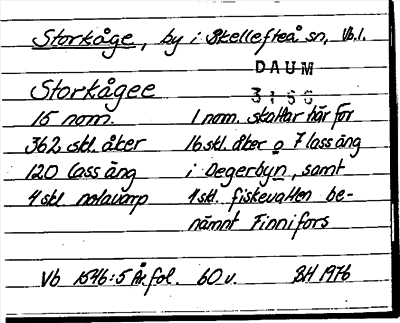 Storkåge, by i Skellefteå sn, Vb.l.
DAUM
Storkågee 3166
15 nom. 1 nom. skattar här för
362 skl. åker 16 skl. åker o 7 lass äng
120 lass äng i Degerbyn, samt
4 skl notavarp 4 skl. fiskevatten be-
nämnt Finnifors
Vb 1546:5 År. fol. 60 v. BH 1976